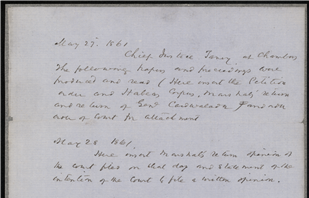 May 27. 1861.
Chief Justice Taney, at Chambers
The following papers and proceedings were
produced and read (Here insert the Petition
order and Habeas Corpus, Marshal's return
and return of Genl Cadwalader and
order of Court for attachment
May 28. 1861,
Here insert Marshal's return opinion of
the court filed on that day and statement of the
intention of the Court to file a written opinion.